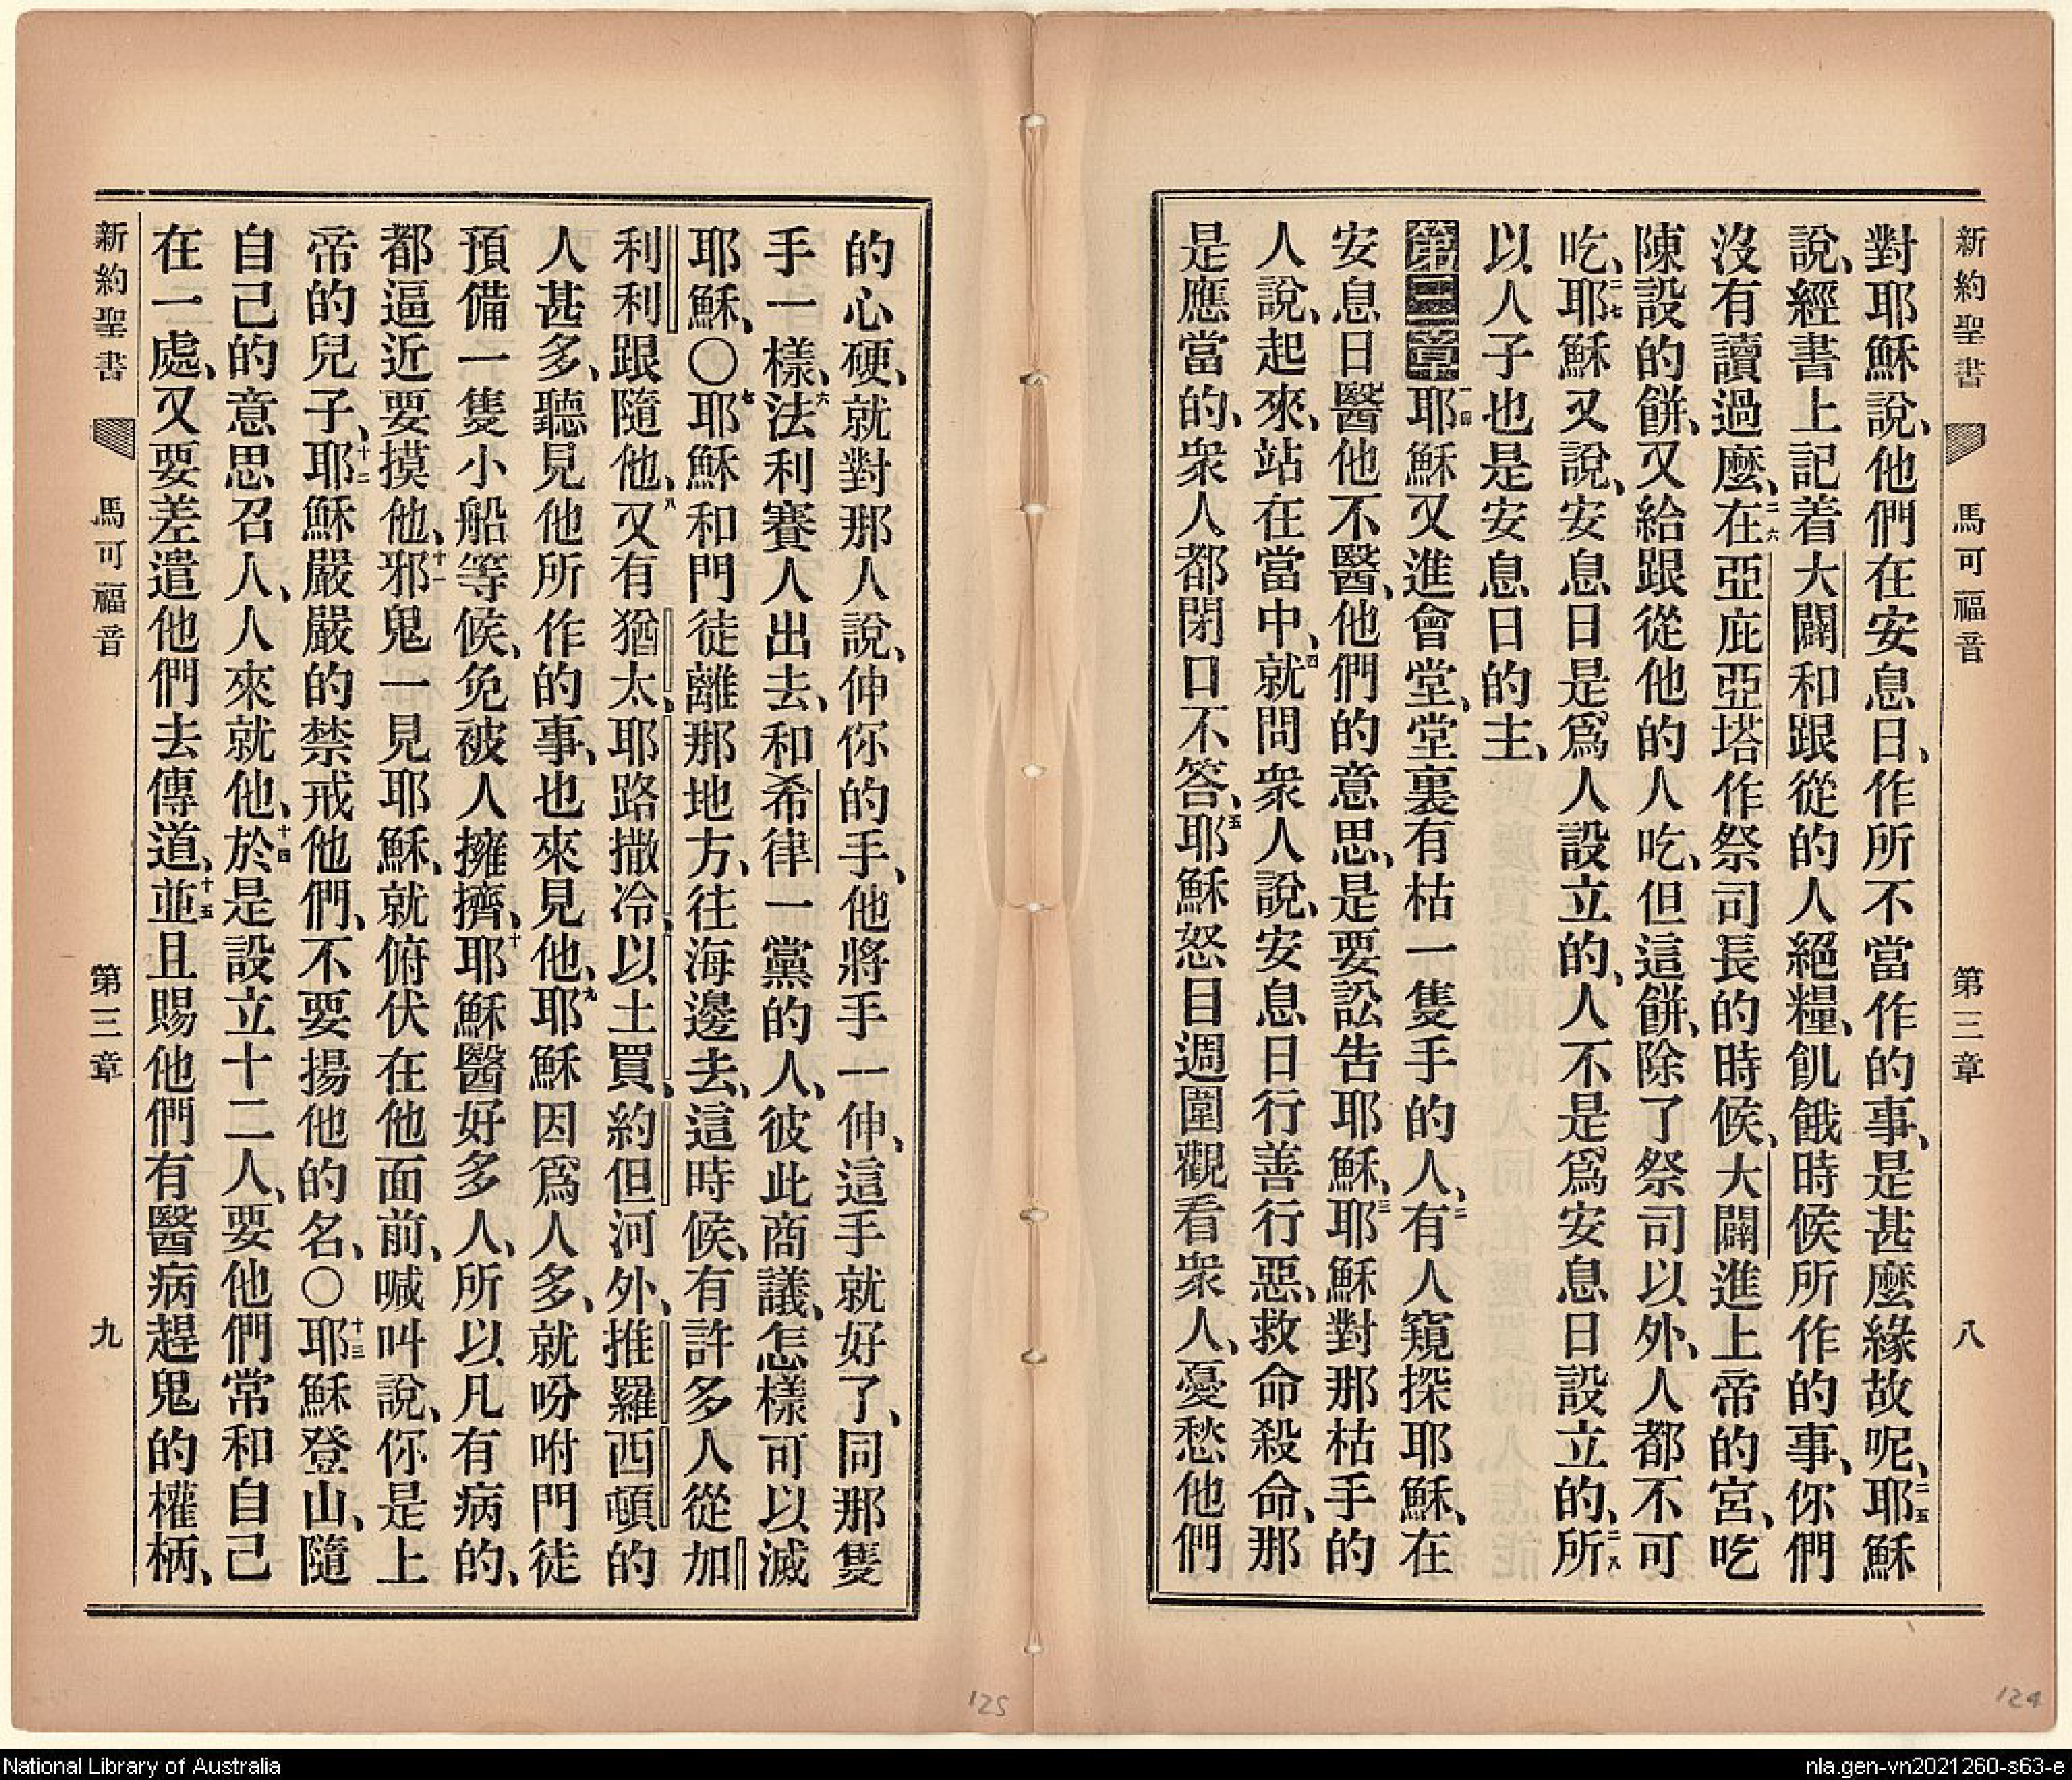 新約聖書 馬可福音 第三章 八
對耶穌說、他們在安息日、作所不當作的事、是甚麼緣故呢、二五耶穌
說、經書上記着大闢和跟從的人絕糧、飢餓時候所作的事、你們
沒有讀過麼、二六在亞庇亞塔作祭司長的時候、大闢進上帝的宮、吃
陳設的餅、又給跟從他的人吃、但這餅、除了祭司以外、人都不可
吃、二七耶穌又說、安息日是爲人設立的、人不是爲安息日設立的、二八所
以人子也是安息日的主、
第三章 一耶穌又進會堂、堂裏有枯一隻手的人、二有人窺探耶穌、在
安息日醫他不醫、他們的意思、是要訟告耶穌、三耶穌對那枯手的
人說、起來、站在當中、四就問衆人說、安息日行善行惡、救命殺命、那
是應當的、衆人都閉口不答、五耶穌怒目週圍觀看衆人、憂愁他們
的心硬、就對那人說、伸你的手、他將手一伸、這手就好了、同那隻
手一樣、六法利賽人出去、和希律一黨的人、彼此商議、怎樣可以滅
耶穌、〇七耶穌和門徒離那地方、往海邊去、這時候、有許多人從加
利利跟隨他、八又有猶太、耶路撒冷、以土買、約但河外、推羅西頓的
人甚多、聽見他所作的事、也來見他、九耶穌因爲人多、就吩咐門徒
預備一隻小船等候、免被人擁擠、十耶穌醫好多人、所以凡有病的、
都逼近要摸他、十一邪鬼一見耶穌、就俯伏在他面前、喊叫說、你是上
帝的兒子、十二耶穌嚴嚴的禁戒他們、不要揚他的名、〇十三耶穌登山、隨
自己的意思召人、人來就他、十四於是設立十二人、要他們常和自己
在一處、又要差遣他們去傳道、十五並且賜他們有醫病趕鬼的權柄、
新約聖書 馬可福音 第三章 九
125
124
National Library of Australia
nla.gen-vn2021260-s63-e